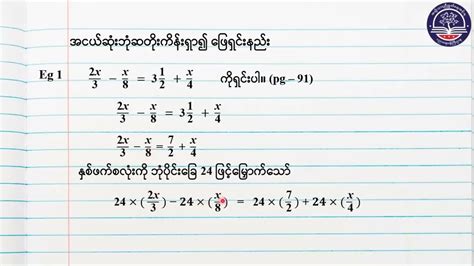 အငယ်ဆုံးဘုံဆတိုးကိန်းရှာ၍ ဖြေရှင်းနည်း
Eg 1 2x/3 − x/8 = 3 1/2 + x/4 ကိုရှင်းပါ။ (pg – 91)
2x/3 − x/8 = 3 1/2 + x/4
2x/3 − x/8 = 7/2 + x/4
နှစ်ဖက်စလုံးကို ဘုံပိုင်းခြေ 24 ဖြင့်မြှောက်သော်
24 × (2x/3) − 24 × (x/8) = 24 × (7/2) + 24 × (x/4)